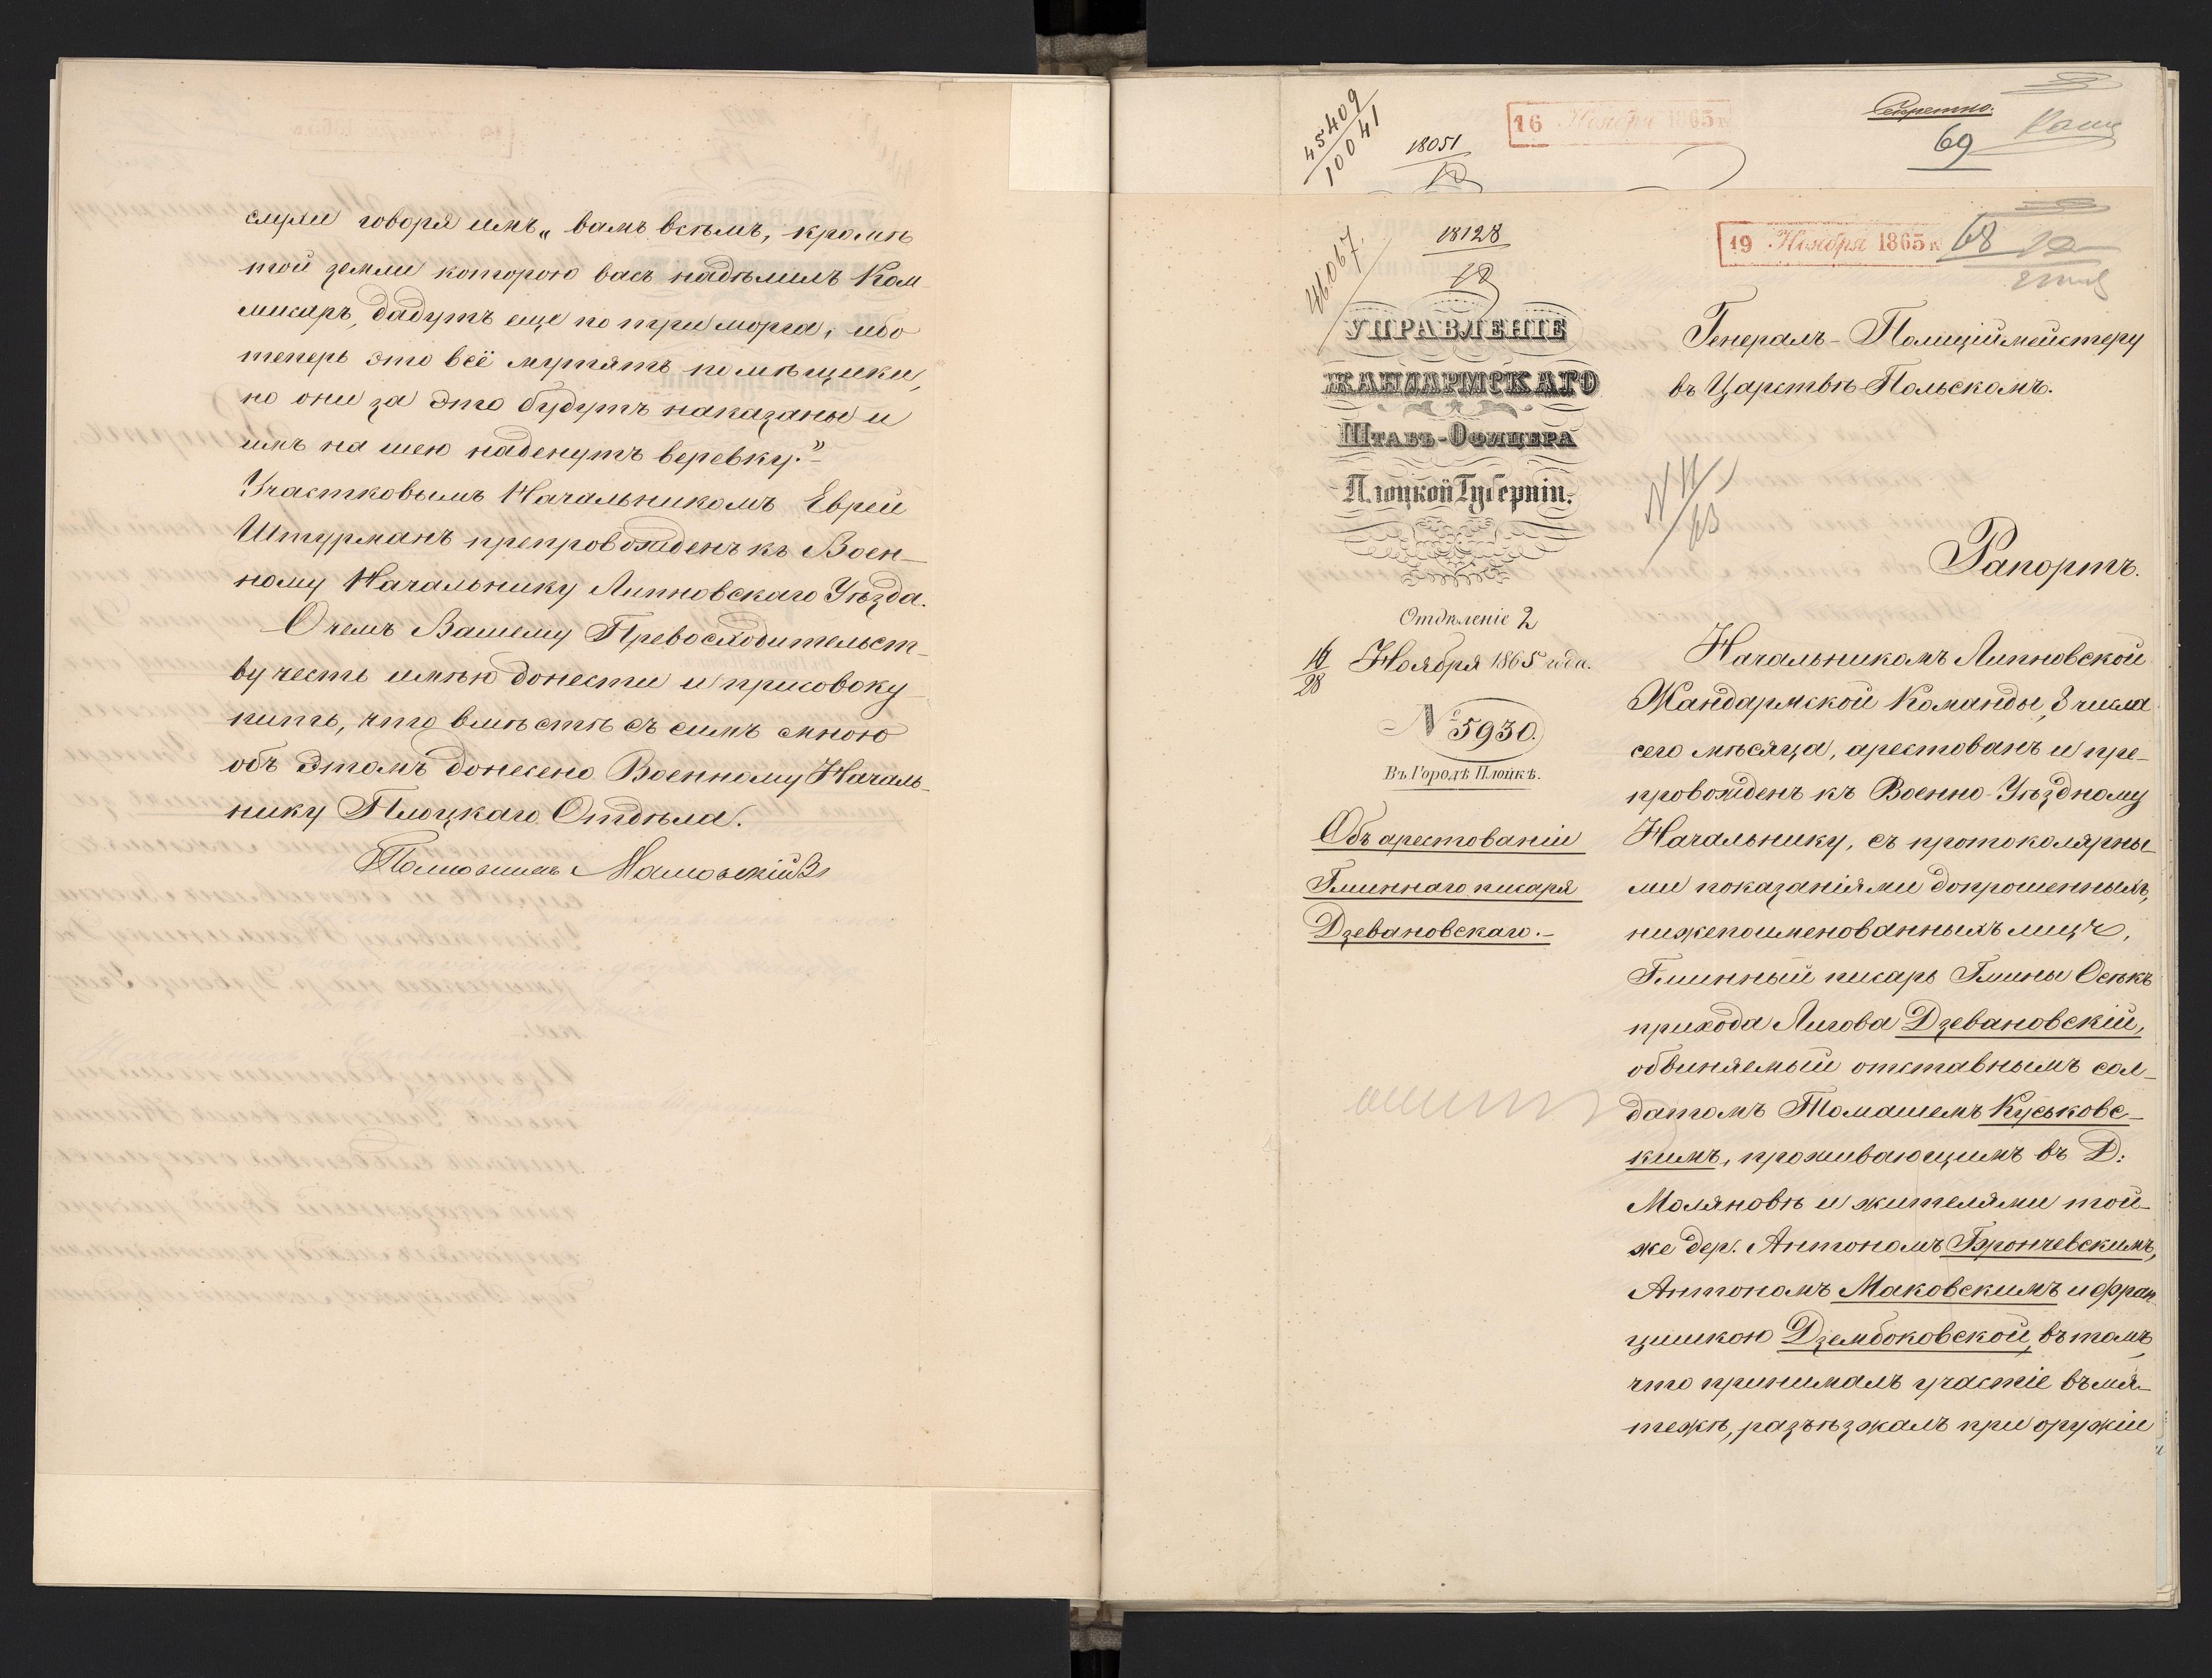 слухи говоря имъ „вамъ всѣмъ, кромѣ
той земли которою васъ надѣлилъ Ком-
мисаръ, дадутъ еще по три морга, ибо
теперь это всё мутятъ помѣщики,
но они за это будутъ наказаны и
имъ на шею наденутъ веревку."
Участковымъ Начальникомъ Еврей
Штурманъ препровожденъ къ Воен-
ному Начальнику Липновскаго Уѣзда.
О чемъ Вашему Превосходительст-
ву честь имѣю донести и присовоку-
пить, что вмѣстѣ съ симъ мною
объ этомъ донесено Военному Началь-
нику Плоцкаго Отдѣла.
45409
10041
18051
16 Ноября 1865 г.
Секретно.
69
46067
18128
19 Ноября 1865 г.
68
УПРАВЛЕНІЕ
ЖАНДАРМСКАГО
ШТАБЪ-ОФИЦЕРА
Плоцкой Губерніи.
Отдѣленіе 2
16/28 Ноября 1865 года.
№ 5930.
Въ Городѣ Плоцкѣ.
Объ арестованіи
Гминнаго писаря
Дзевановскаго.-
Генералъ-Полиціймейстеру
въ Царствѣ Польскомъ.
Рапортъ.
Начальникомъ Липновской
Жандармской Команды, 8 числа
сего мѣсяца, арестованъ и пре-
провожденъ къ Военно-Уѣздному
Начальнику, съ протоколярны-
ми показаніями допрошенныхъ,
нижепоименованныхъ лицъ,
Гминный писарь Гмины Осѣкъ
прихода Лигова Дзевановскій,
обвиняемый отставнымъ сол-
датомъ Томашемъ Куськовс-
кимъ, проживающимъ въ Д:
Моляновѣ и жителями той-
же дер. Антономъ Брончевскимъ,
Антономъ Маковскимъ и Фран-
цишкою Дзембоковской, въ томъ,
что принималъ участіе въ мя-
тежѣ, разъѣзжалъ при оружіи